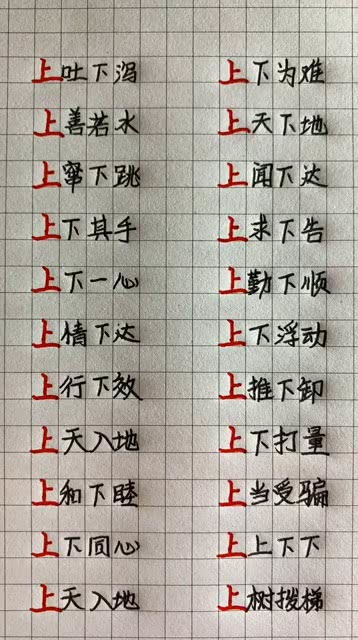 上吐下泻 上下为难
上善若水 上天下地
上窜下跳 上闻下达
上下其手 上求下告
上下一心 上勤下顺
上情下达 上下浮动
上行下效 上推下卸
上天入地 上下打量
上和下睦 上当受骗
上下同心 上上下下
上天入地 上树拨梯